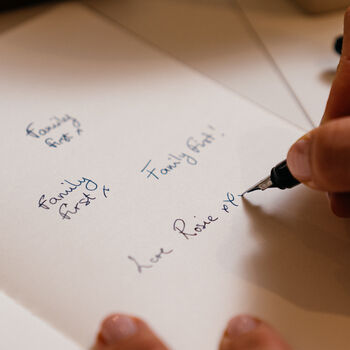 Family
first x
Family first!
Family
first x
Love Rosie xx